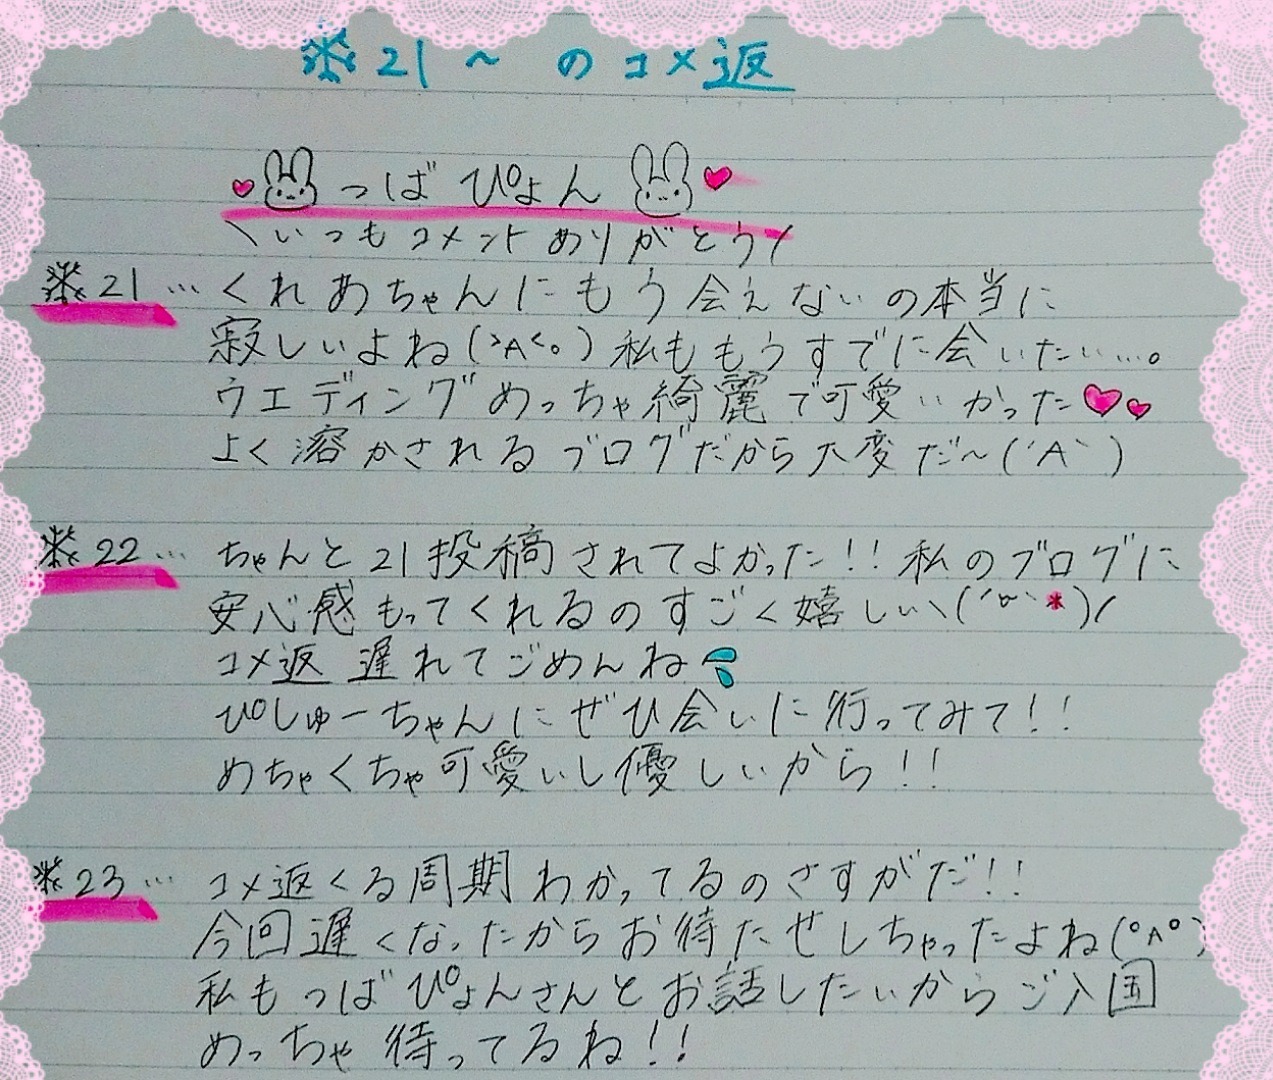 ❄21〜 のコメ返
っばぴょん
\いつもコメントありがとう/
❄21… くれあちゃんにもう会えないの本当に
寂しいよね(>A<。) 私ももうすでに会いたい…。
ウエディングめっちゃ綺麗で可愛いかった♥♥
よく溶かされるブログだから大変だ〜(´A`)
❄22… ちゃんと21投稿されてよかった!! 私のブログに
安心感もってくれるのすごく嬉しい\(´▽`*)/
コメ返遅れてごめんね
ぴしゅーちゃんにぜひ会いに行ってみて!!
めちゃくちゃ可愛いし優しいから!!
❄23… コメ返くる周期わかってるのさすがだ!!
今回遅くなったからお待たせしちゃったよね(°^°)
私もっばぴょんさんとお話したいからご入国
めっちゃ待ってるね!!